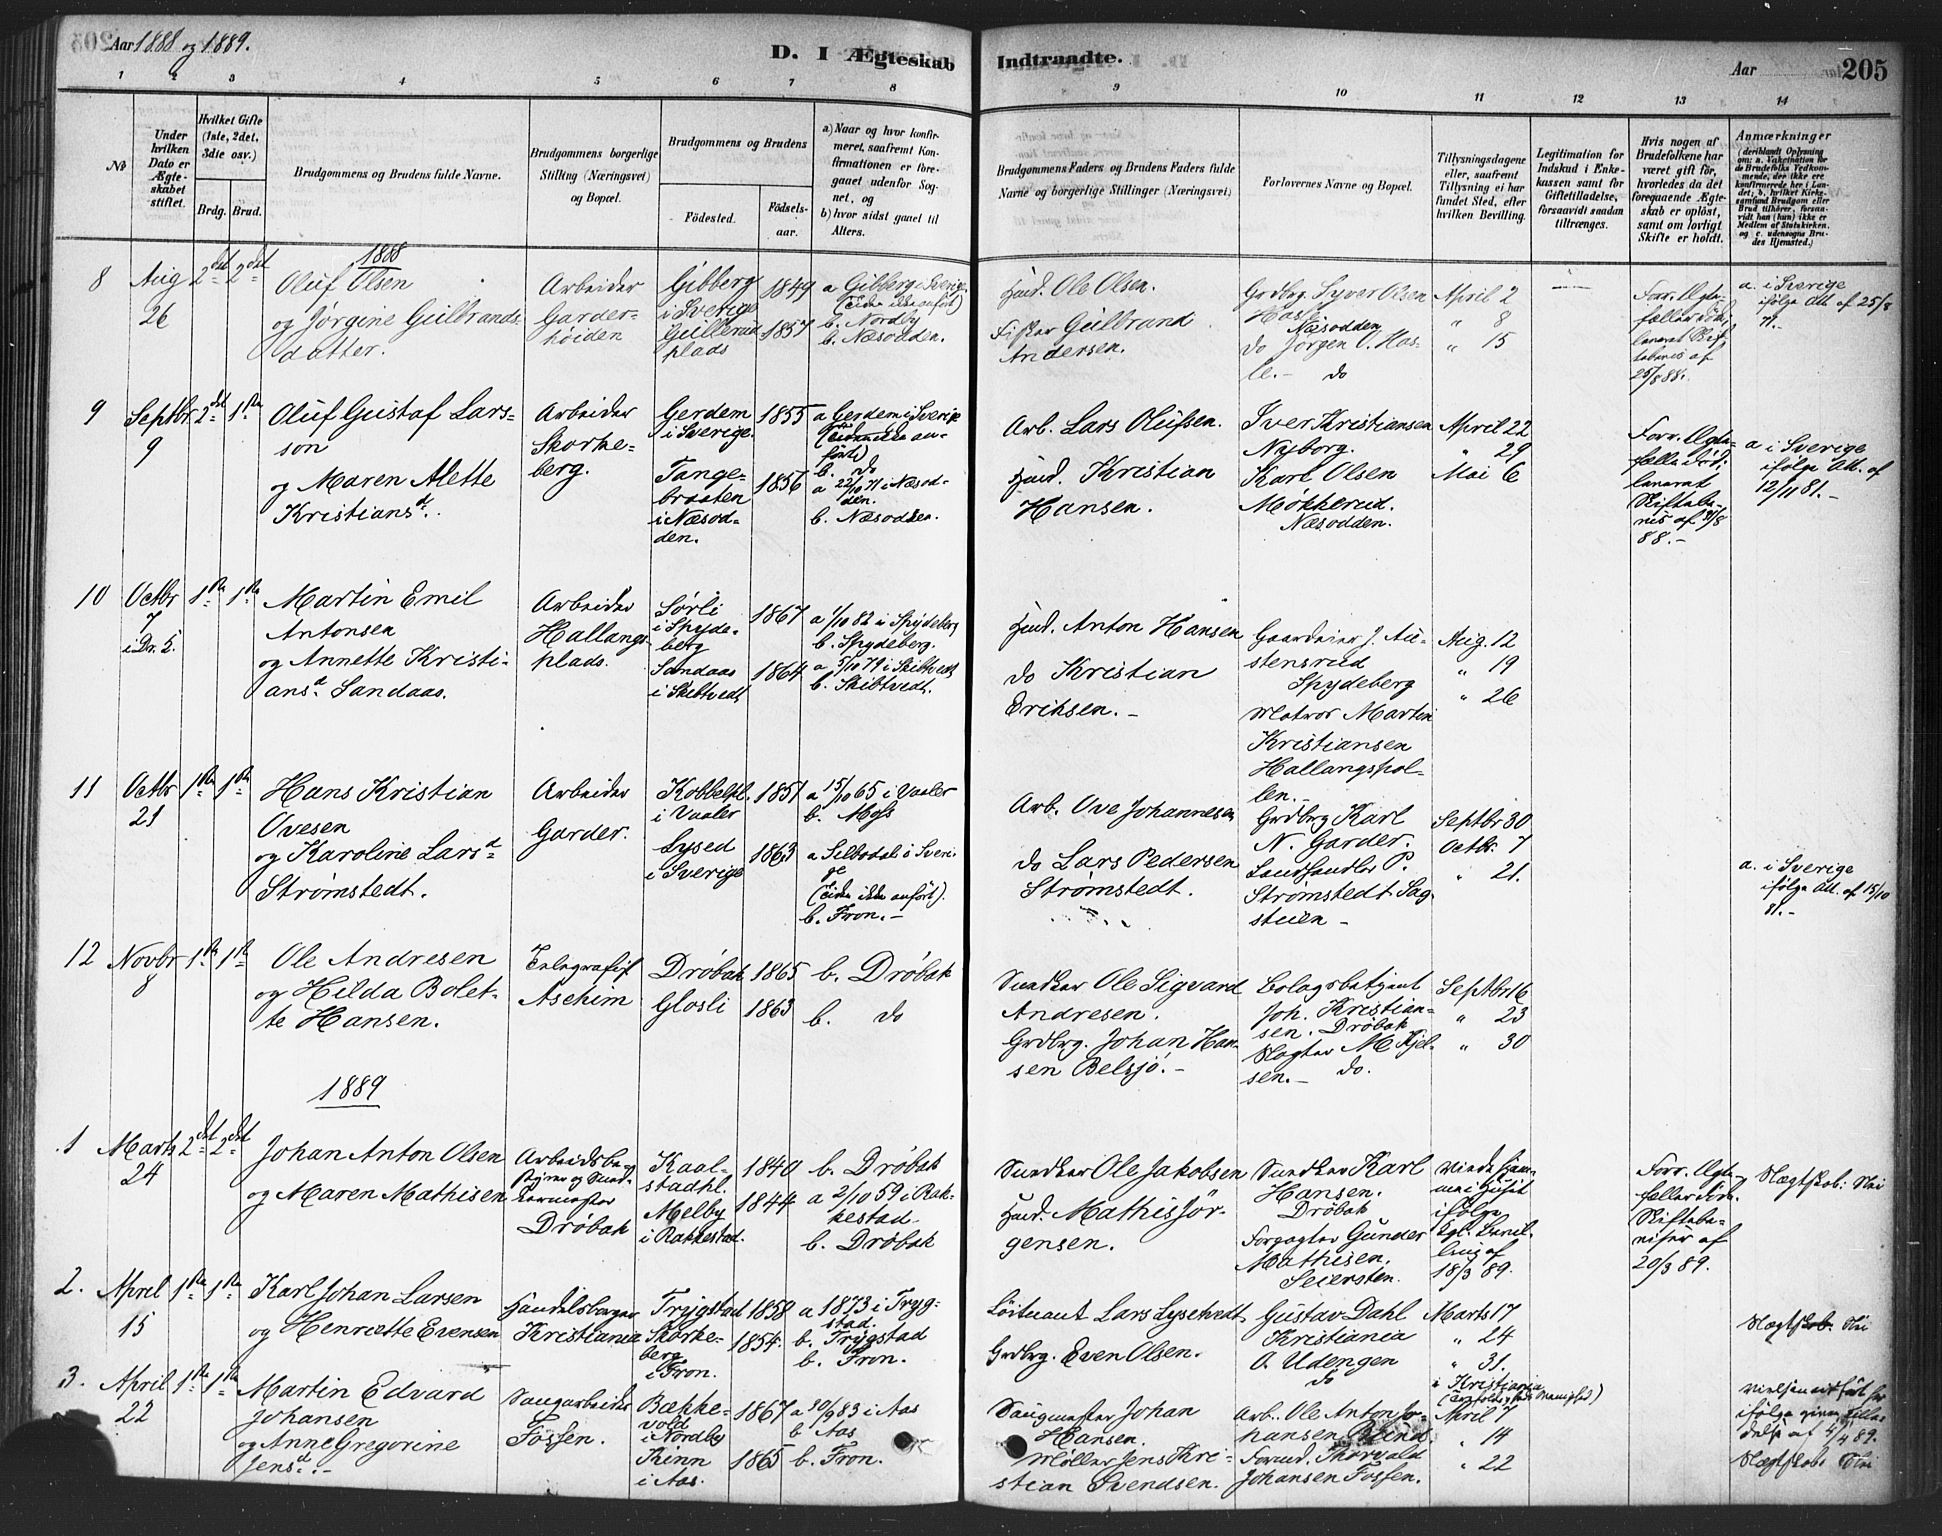 Aar 1888 og 1889.
D. I Ægteskab Indtraadte.
Aar 205
1 2 3 4 5 6 7 8 9 10 11 12 13 14
No
Under hvilken Dato er Ægteskabet stiftet.
Hvilket Gifte (1ste, 2det, 3die osv.)
Brdg. Brud.
Brudgommens og Brudens fulde Navne.
Brudgommens borgerlige Stilling (Næringsvei) og Bopæl.
Brudgommens og Brudens
Fødested. Fødsels-aar.
a) Naar og hvor konfirmeret, saafremt Konfirmationen er foregaaet udenfor Sognet, og
b) hvor sidst gaaet til Alters.
Brudgommens Faders og Brudens Faders fulde Navne og borgerlige Stillinger (Næringsvei)
Forlovernes Navne og Bopæl.
Tillysningsdagene eller, saafremt Tillysning ei har fundet Sted, efter hvilken Bevilling.
Legitimation for Indskud i Enkekassen samt for Giftetilladelse, forsaavidt saadan tiltrænges.
Hvis nogen af Brudefolkene har været gift før, hvorledes da det foregaaende Ægteskab er opløst, samt om lovligt Skifte er holdt.
Anmærkninger
(deriblandt Oplysning om: a. Vakcination for de Brudefolks Vedkommende, der ikke ere konfirmerede her i Landet; b. hvilket Kirkesamfund Brudgom eller Brud tilhører, forsaavidt han (hun) ikke er Medlem af Statskirken. og c. udensogns Brudes Hjemsted.)
1888
8 Aug 26 2det 2det
Oluf Olsen
og Jørgine Gulbrands-
datter.
Arbeider
Garder-
høiden
Gibberg
i Sverige 1849
Gullerud
plads 1857
a Gibberg i Sverige
(Tiden ikke anført)
b. Nordby
b. Næsodden.
Husd. Ole Olsen.
Fisker Gulbrand
Andersen.
Grdbrg. Syver Olsen
Hasle
Næsodden
do Jørgen O. Has-
le.- do
April 2
" 8
" 15
Forr. Ægte-
fæller død,
25/8 88.
a. i Sverige
ifølge Att. af 25/8
71.-
9 Septbr 9 2det 1ste
Oluf Gustaf Lars-
son
og Maren Alette
Kristiansd.
Arbeider
Skorke-
berg.
Gerdem
i Sverige. 1855
Tange-
braaten
i Næsod-
den. 1856
a Gerdem i Sverige
(Tiden ikke an-
ført)
b. do
a 22/10 71 i Næsod-
den.
b. Næsodden.
Arb. Lars Olufsen.
Husd. Kristian
Hansen.
Iver Kristiansen
Nyborg.
Karl Olsen
Møkkerud.
Næsodden.
April 22
" 29
Mai 6
Forr. Ægte-
fælle død;
Skiftebe-
vis af
88.-
a i Sverige
ifølge Att. af
12/11 81.-
10 Octbr 7 i Dr. K. 1ste 1ste
Martin Emil
Antonsen
og Annette Kristi-
ansd. Sandaas.
Arbeider
Hallangs-
plads.
Sørli
i Spyde-
berg 1867
Sandaas
i Skibtvedt 1864
a 1/10 82 i Spydeberg
b. Spydeberg.
a 5/10 79 i Skibtvedt
b. Skibtvedt.
Husd. Anton Hansen
do Kristian
Eriksen.-
Gaardeier J. Au-
stensrud
Spydeberg
Matros Martin
Kristiansen
Hallangspol-
len.-
Aug. 12
" 19
" 26
11 Octbr 21 1ste 1ste
Hans Kristian
Ovesen
og Karoline Larsd.
Strømstedt.
Arbeider
Garder.
Kobbelpl.
i Vaaler 1851
Lysed
i Sverige 1863
a 15/10 65 i Vaaler
b. Moss
a Silbodal i Sveri-
ge
(Tiden ikke anført).
b. Fron.-
Arb. Ove Johannesen
do Lars Pedersen
Strømstedt.
Grdbrg Karl
N. Garder.
Landhandler P.
Strømstedt Sag-
stuen -
Septbr 30
Octbr. 7
" 21.
a. i Sverige
ifølge Att. af 15/10
81.-
12 Novbr 8 1ste 1ste
Ole Andresen
og Hilda Bolet-
te Hansen.
Telegrafist
Askim
Drøbak 1865
Glosli 1863
b. Drøbak
b. do
Snedker Ole Sigvard
Andresen.
Grdbrg. Johan Han-
sen Belsjø.-
Tolagsbetjent
Joh. Kristian-
sen. Drøbak
Slagter M Kjel-
sen.- do.
Septbr 16
" 23
" 30
1889
1 Marts 24 2det 2det
Johan Anton Olsen
og Maren Mathisen
Arbeidsbe-
styrer og Sned-
kermester
Drøbak
Kaal-
stadhl. 1840
Melby
i Rakkestad. 1844
b. Drøbak
a 2/10 59 i Rak-
kestad.
b. Drøbak
Snedker Ole Jakobsen
Husd. Mathis Jør-
gensen.
Snedker Karl
Hansen.
Drøbak
Forpagter Gunder
Mathisen.
Seiersten.
Viede hjem-
me i Huset
ifølge
Kgl. Bevil-
ling af
18/3 89.
Forr. Ægte-
fæller død.
Skiftebe-
viser af
20/3 89.
Slægtskab: Nei
2. April 15 1ste 1ste
Karl Johan Larsen
og Henriette Evensen
Handelsborger
Kristiania
Trygstad 1858
Skorke-
berg
i Fron. 1854.
a 1873 i Tryg-
stad.
b. Trygstad
b. Fron.
Løitnant Lars Lysetvedt
Grdbrg. Even Olsen.
Gustav Dahl
Kristiania
O. Udengen
do
Marts 17
" 24
" 31.
i Kristiania
Slægtskab. Nei
3. April 22 1ste 1ste
Martin Edvard
Johansen
og Anne Gregorine
Jensd.-
Saugarbeider
Fossen.
Bække-
vold
i Nordby 1867
Rinn
i Aas. 1865
a 30/9 83 i Aas
b Aas
b. Fron.
Saugmester Johan
Hansen.
Møller Jens Kri-
stian Svendsen.
Arb. Ole Anton Jo-
hansen
Forvd. Thorvald
Johansen Fossen.
April 7
" 14
" 22
Vielsen udført her
ifølge given Tilla-
delse af 4/4 89.
Slægtskab: Nei